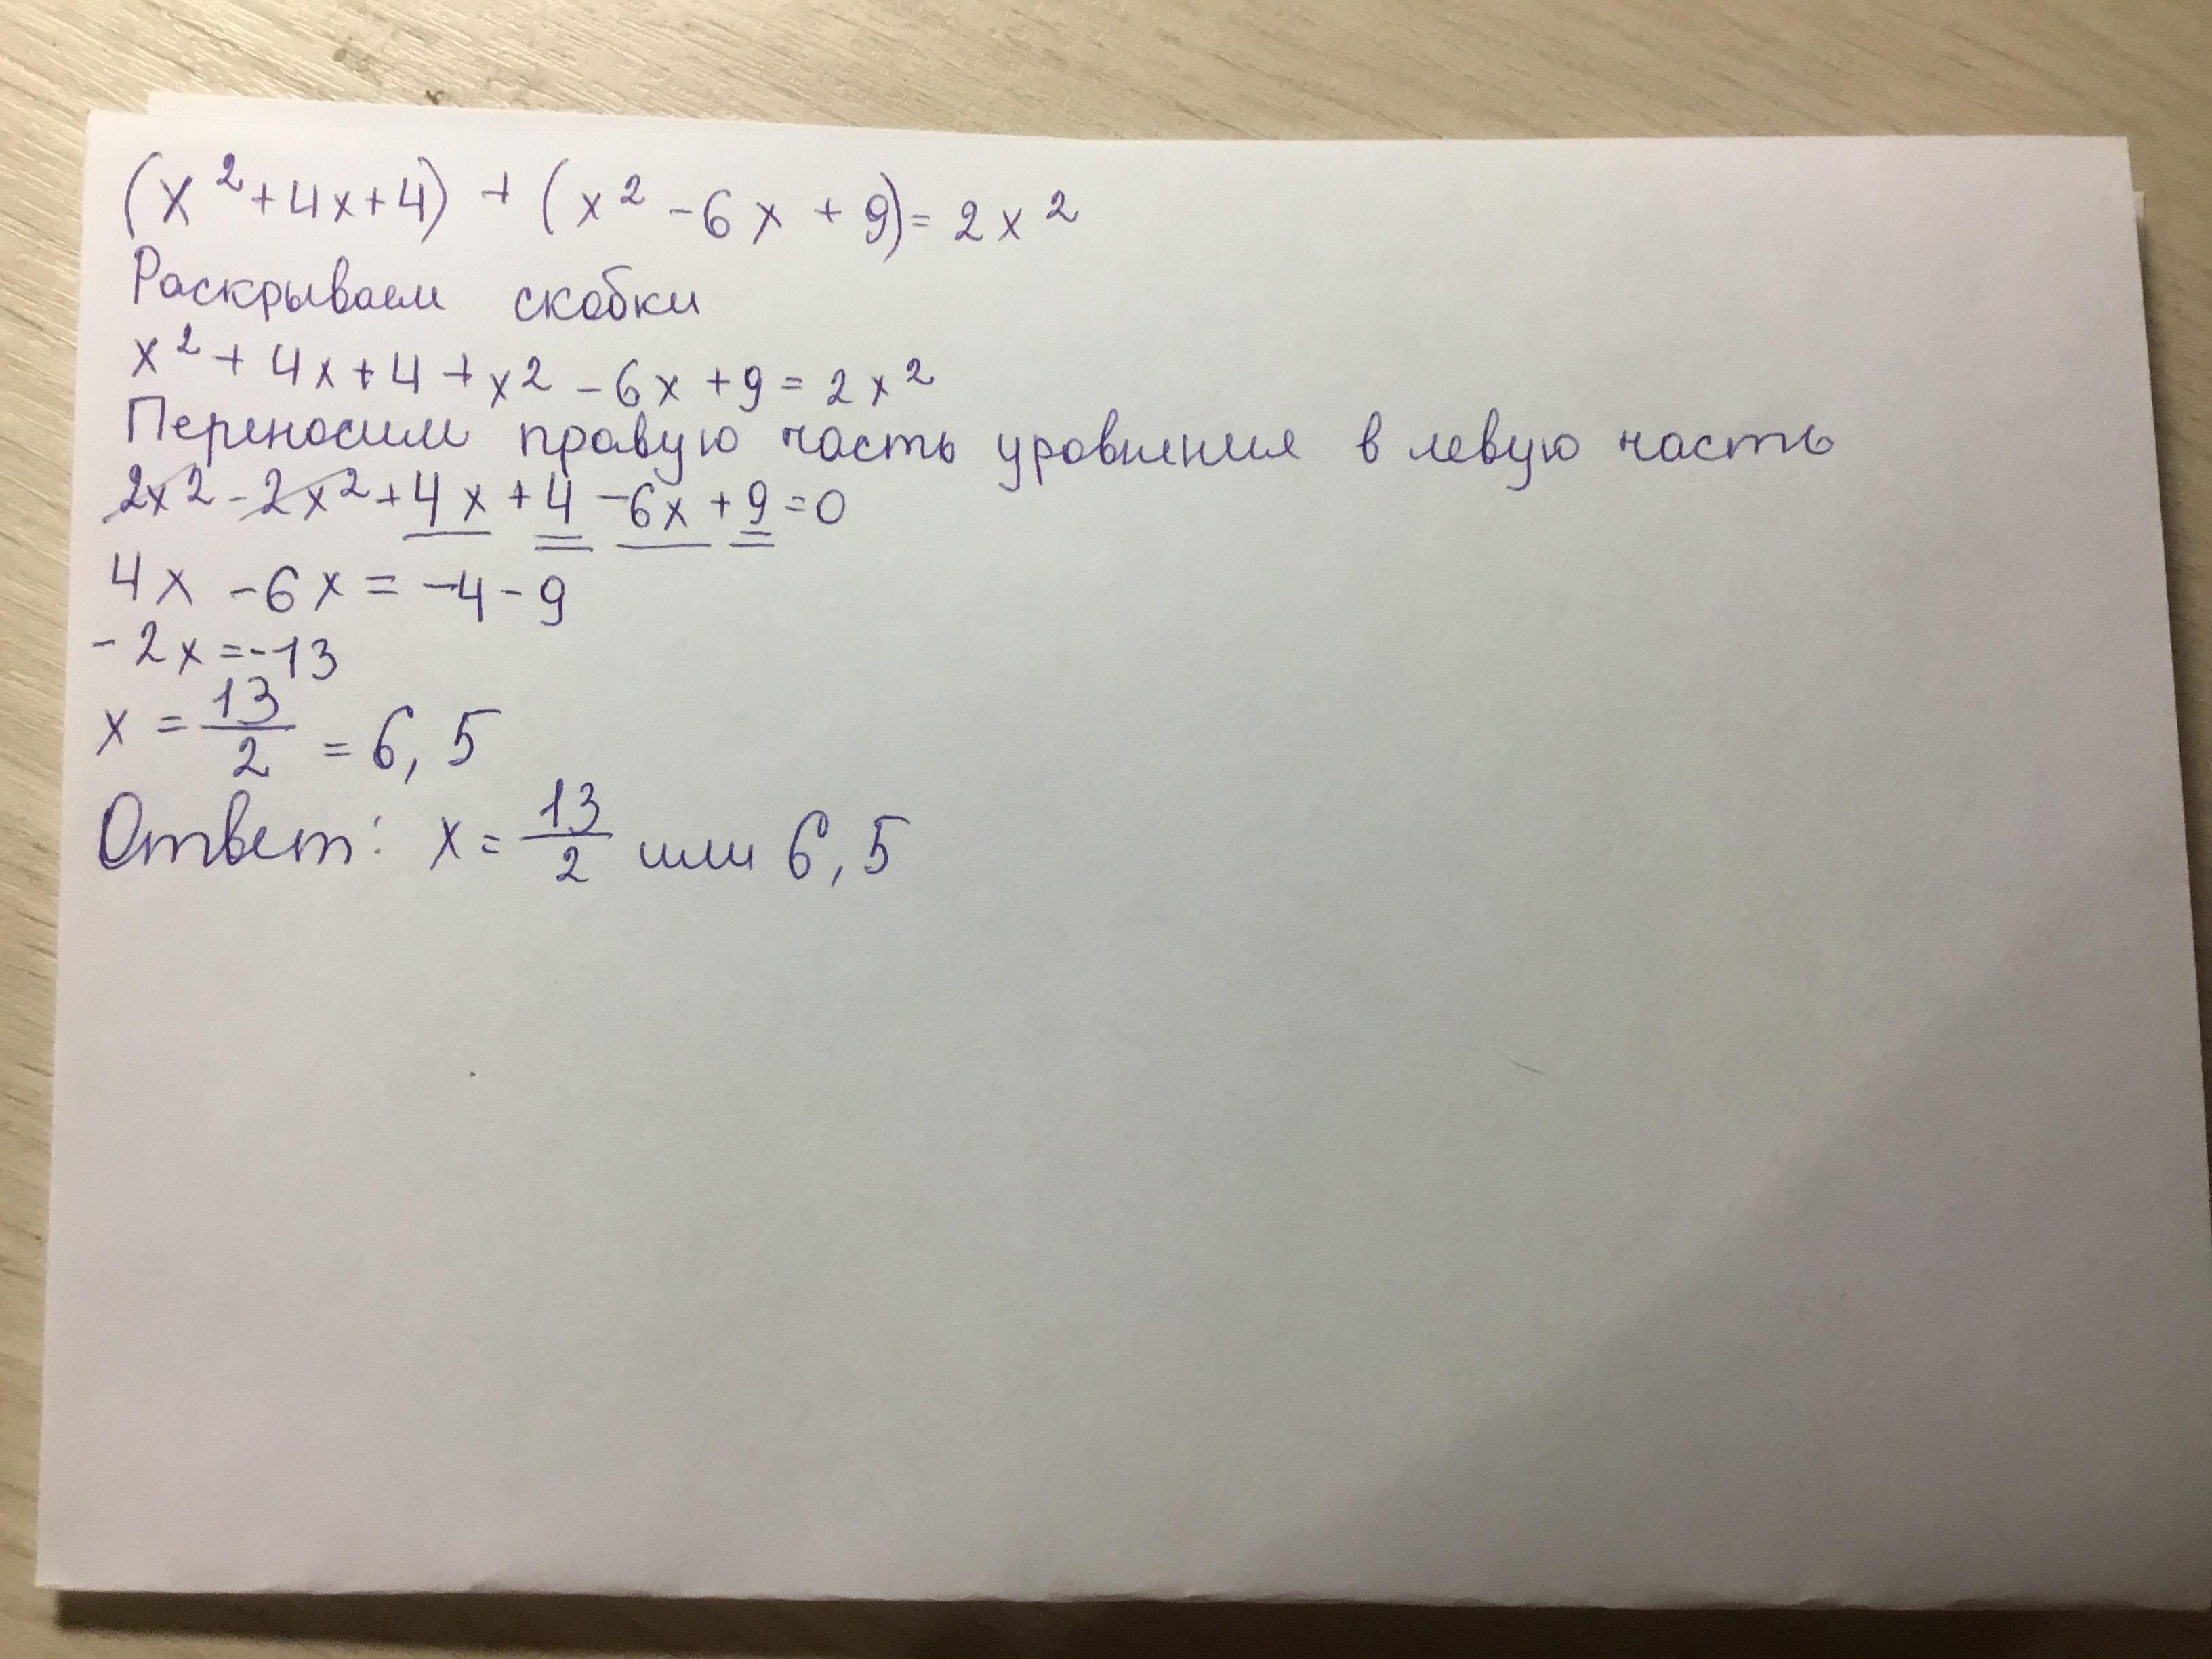 (x² + 4x + 4) + (x² - 6x + 9) = 2x²
Раскрываем скобки
x² + 4x + 4 + x² - 6x + 9 = 2x²
Переносим правую часть уровнения в левую часть
2x² - 2x² + 4x + 4 - 6x + 9 = 0
4x - 6x = -4 - 9
-2x = -13
x = 13/2 = 6,5
Ответ: x = 13/2 или 6,5